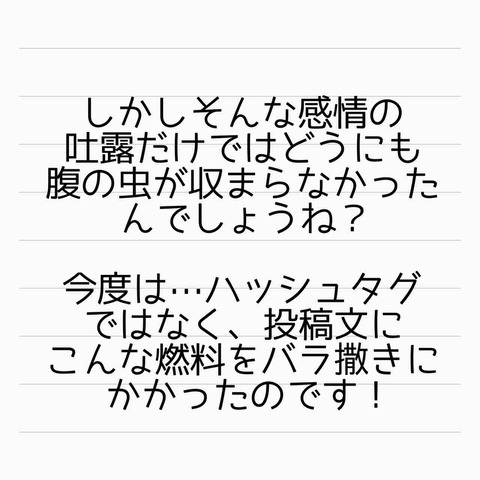 しかしそんな感情の
吐露だけではどうにも
腹の虫が収まらなかった
んでしょうね？
今度は…ハッシュタグ
ではなく、投稿文に
こんな燃料をバラ撒きに
かかったのです！